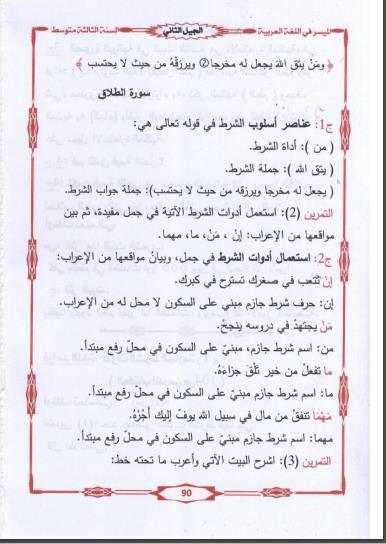 الميسر في اللغة العربية الجيل الثاني السنة الثالثة متوسط
﴿ ومَنْ يتق اللهَ يجعل له مخرجا② ويرزقْهُ من حيث لا يحتسب ﴾
سورة الطلاق
ج1: عناصر أسلوب الشرط في قوله تعالى هي:
( من ): أداة الشرط.
( يتق الله ): جملة الشرط.
( يجعل له مخرجا ويرزقه من حيث لا يحتسب): جملة جواب الشرط.
التمرين (2): استعمل أدوات الشرط الآتية في جمل مفيدة، ثم بين
مواقعها من الإعراب: إنْ ،مَنْ، ما، مهما.
ج2: استعمال أدوات الشرط في جمل، وبيانُ مواقعها من الإعراب:
إنْ تتعب في صغرك تسترح في كبرك.
إن: حرف شرط جازم مبني على السكون لا محل له من الإعراب.
مَنْ يجتهدْ في دروسه ينجحْ.
من: اسم شرط جازم، مبنيّ على السكون في محلّ رفع مبتدأ.
ما تفعلْ من خير تلْقَ جزاءَهُ.
ما: اسم شرط جازم، مبنيّ على السكون في محل رفع مبتدأ.
مَهْمَا تنفقْ من مال في سبيل الله يوفّ إليك أجْرُهُ.
مهما: اسم شرط جازم مبنيّ على السكون في محلّ رفع مبتدأ.
التمرين (3): اشرح البيت الآتي وأعرب ما تحته خط:
90